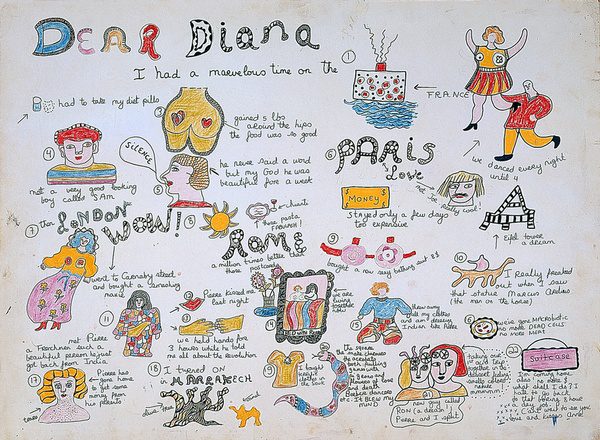 DEAR Diana
I had a marvelous time on the
1
FRANCE
had to take my diet pills
3
gained 5 lbs
around the hips
the food was so good
4
not a very good looking
boy called SAM
SILENCE
5
he never said a word
but my God he was
beautiful for a week
6
PARIS
Love
we danced every night
until 4
not too really cool!
MONEY
stayed only a few days
too expensive
Eifel tower
a dream
7
then
LONDON
WOW!
went to Carnaby street
and bought a
8
ROME
a million times better
than
postcards
9
bought a new sexy bathing suit $$
10
I Really freaked
out when I saw
that statue Marcus
(the man on the horse)
met Pierre
a Frenchman such a
beautiful person just
got back from India
11
12
Pierre kissed me
last night
13
we held hands for
3 hours while he told
me all about the revolution
14
we are
living
together
now
15
threw away
all my clothes
and am dressing
Indian like Pierre
16
we've gone MACROBIOTIC
no more DEAD CELLS
no more MEAT
17
tears
Pierre has
gone home
to get some
money from
his parents
18
I TURNED ON
IN MARRAKECH
olive tree
camel
19
I bought
kaftan
clothes in
the souk
The square
the snake charmers
the acrobats
flowers of love
and death
Berber dances
etc. IT BLEW my
MIND
new guy called
RON (a dream)
Pierre and I split
21
taking our
trip
together in the
Suitcase
I'm coming home
also no more $
what shall I do? I
hate to go back
to that boring 8 hour
a day job.
Can't wait to see you
Love and kisses Anne